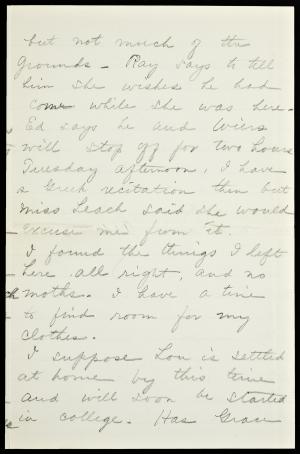 but not much of the
Grounds - Ray says to tell
him she wishes he had
come while she was here -
Ed says he and
will stop off for two hours
Tuesday afternoon, I have
a Greek recitation then but
Miss Leach said she would
excuse me from it.
I found the things I left
here all right, and no
moths. I have a time
to find room for my
clothes.
I suppose Lou is settled
at home by this time
and will soon be started
in college. Has Grace